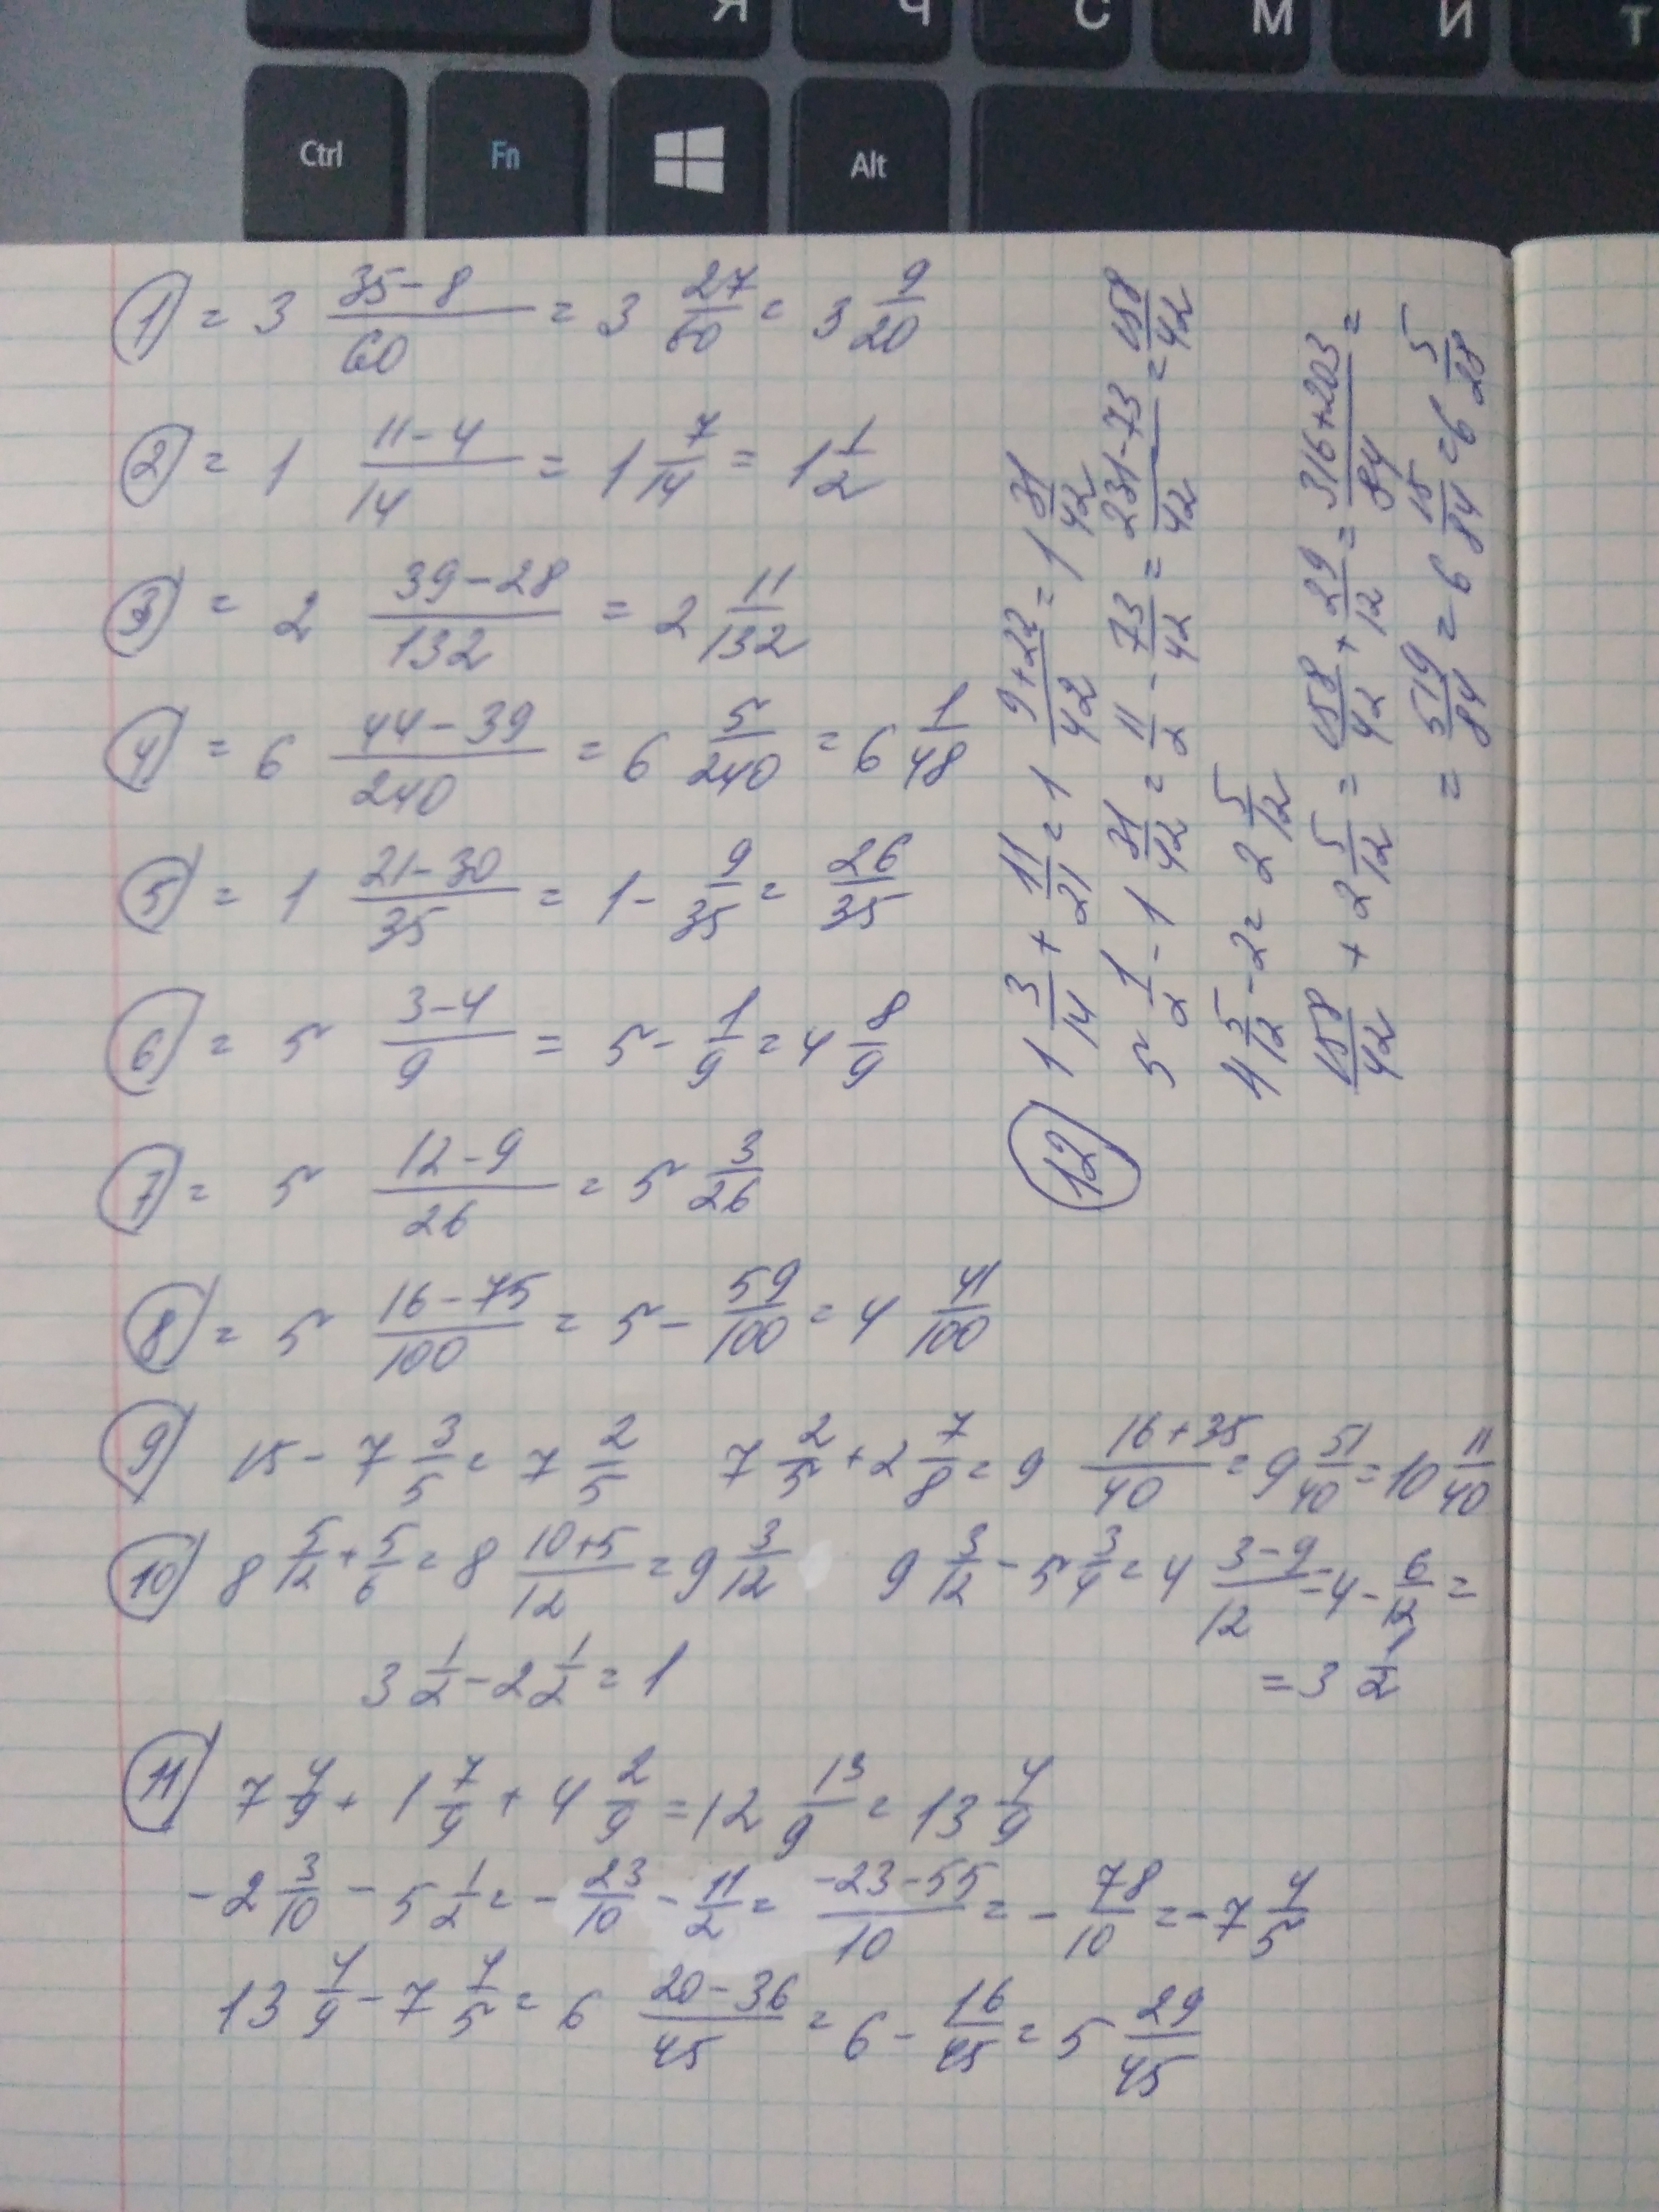 Я Ч С М И Т
Ctrl Fn Alt
1 = 3 (35-8)/60 = 3 27/60 = 3 9/20
2 = 1 (11-4)/14 = 1 7/14 = 1 1/2
3 = 2 (39-28)/132 = 2 11/132
4 = 6 (44-39)/240 = 6 5/240 = 6 1/48
5 = 1 (21-30)/35 = 1 - 9/35 = 26/35
6 = 5 (3-4)/9 = 5 - 1/9 = 4 8/9
7 = 5 (12-9)/26 = 5 3/26
8 = 5 (16-75)/100 = 5 - 59/100 = 4 41/100
9 15 - 7 3/5 = 7 2/5 7 2/5 + 2 7/8 = 9 (16+35)/40 = 9 51/40 = 10 11/40
10 8 5/12 + 5/6 = 8 (10+5)/12 = 9 3/12 9 3/12 - 5 3/4 = 4 (3-9)/12 = 4 - 6/12 =
3 1/2 - 2 1/2 = 1 = 3 1/2
11 7 4/9 + 1 7/9 + 4 2/9 = 12 13/9 = 13 4/9
-2 3/10 - 5 1/2 = - 23/10 - 11/2 = (-23-55)/10 = - 78/10 = -7 4/5
13 4/9 - 7 4/5 = 6 (20-36)/45 = 6 - 16/45 = 5 29/45
12 1 3/14 + 11/21 = 1 (9+22)/42 = 1 31/42
5 1/2 - 1 31/42 = 11/2 - 73/42 = (231-73)/42 = 158/42
4 5/12 - 2 = 2 5/12
158/42 + 2 5/12 = 158/42 + 29/12 = (316+203)/84 =
= 519/84 = 6 15/84 = 6 5/28